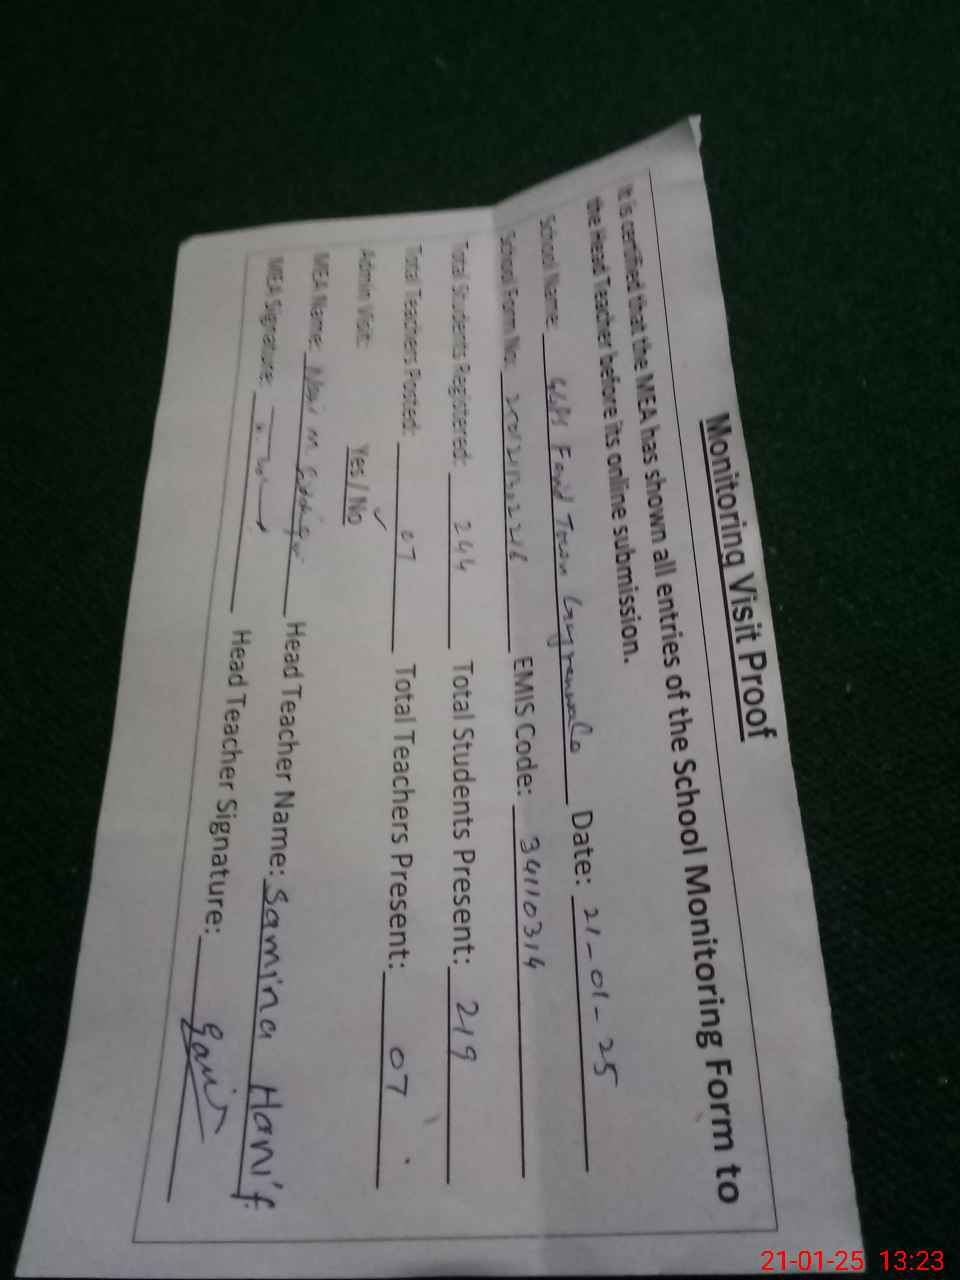 Monitoring Visit Proof
It is certified that the MEA has shown all entries of the School Monitoring Form to
the Head Teacher before its online submission.
School Name: Farid Town Date: 21-01-25
School Form No: EMIS Code: 34110314
Total Students Registered: 244 Total Students Present: 219
Total Teachers Posted: 07 Total Teachers Present: 07
Admin Visit: Yes / No ✓
MEA Name: Head Teacher Name: Samina Hanif
MEA Signature: Head Teacher Signature:
21-01-25 13:23